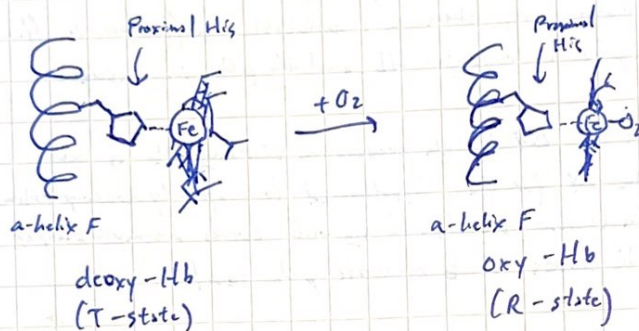 Proximal His
Fe
a-helix F
deoxy-Hb
(T-state)
+O2
Proximal
His
Fe
O2
a-helix F
oxy-Hb
(R-state)